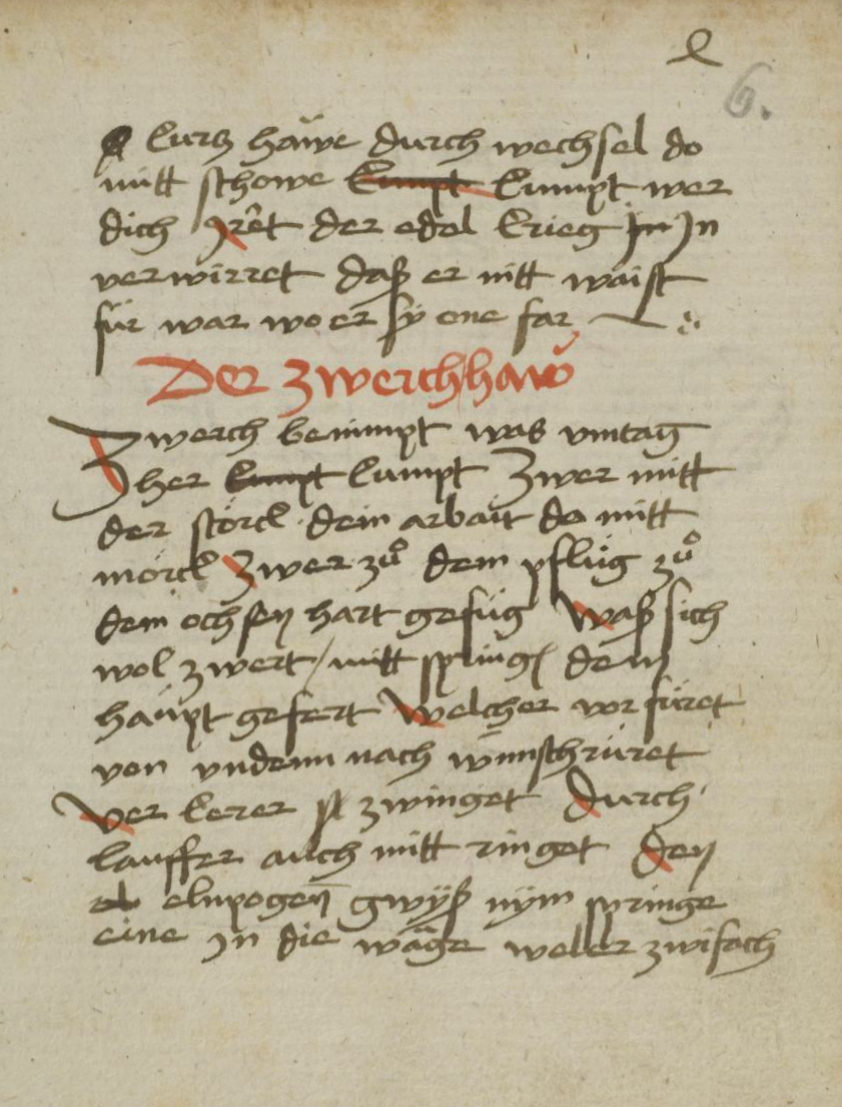 6.
kurtz häwe durch wechsel do
mitt schowe kumpt kumpt wer
dich jrret der edel krieg jn Jn
verwirret daß er nitt waist
für war wo er sÿ one far
Der zwerchhaw
Zwerch benimpt was vmtag
her kumpt kumpt Zwer mitt
der störck dein arbait do mitt
mörck Zwer zuͦ dem pflüg zuͦ
dem ochsen hart gefüg Waß sich
wol zwert / mitt springen dem
haüpt gefert Welcher vor füret
von vndenn nach wünsch rüret
Ver kerer zwinget Durch
lauffer auch mitt ringet Den
elnpogen gwÿß nÿm springe
eine Jn die wäge zwifach